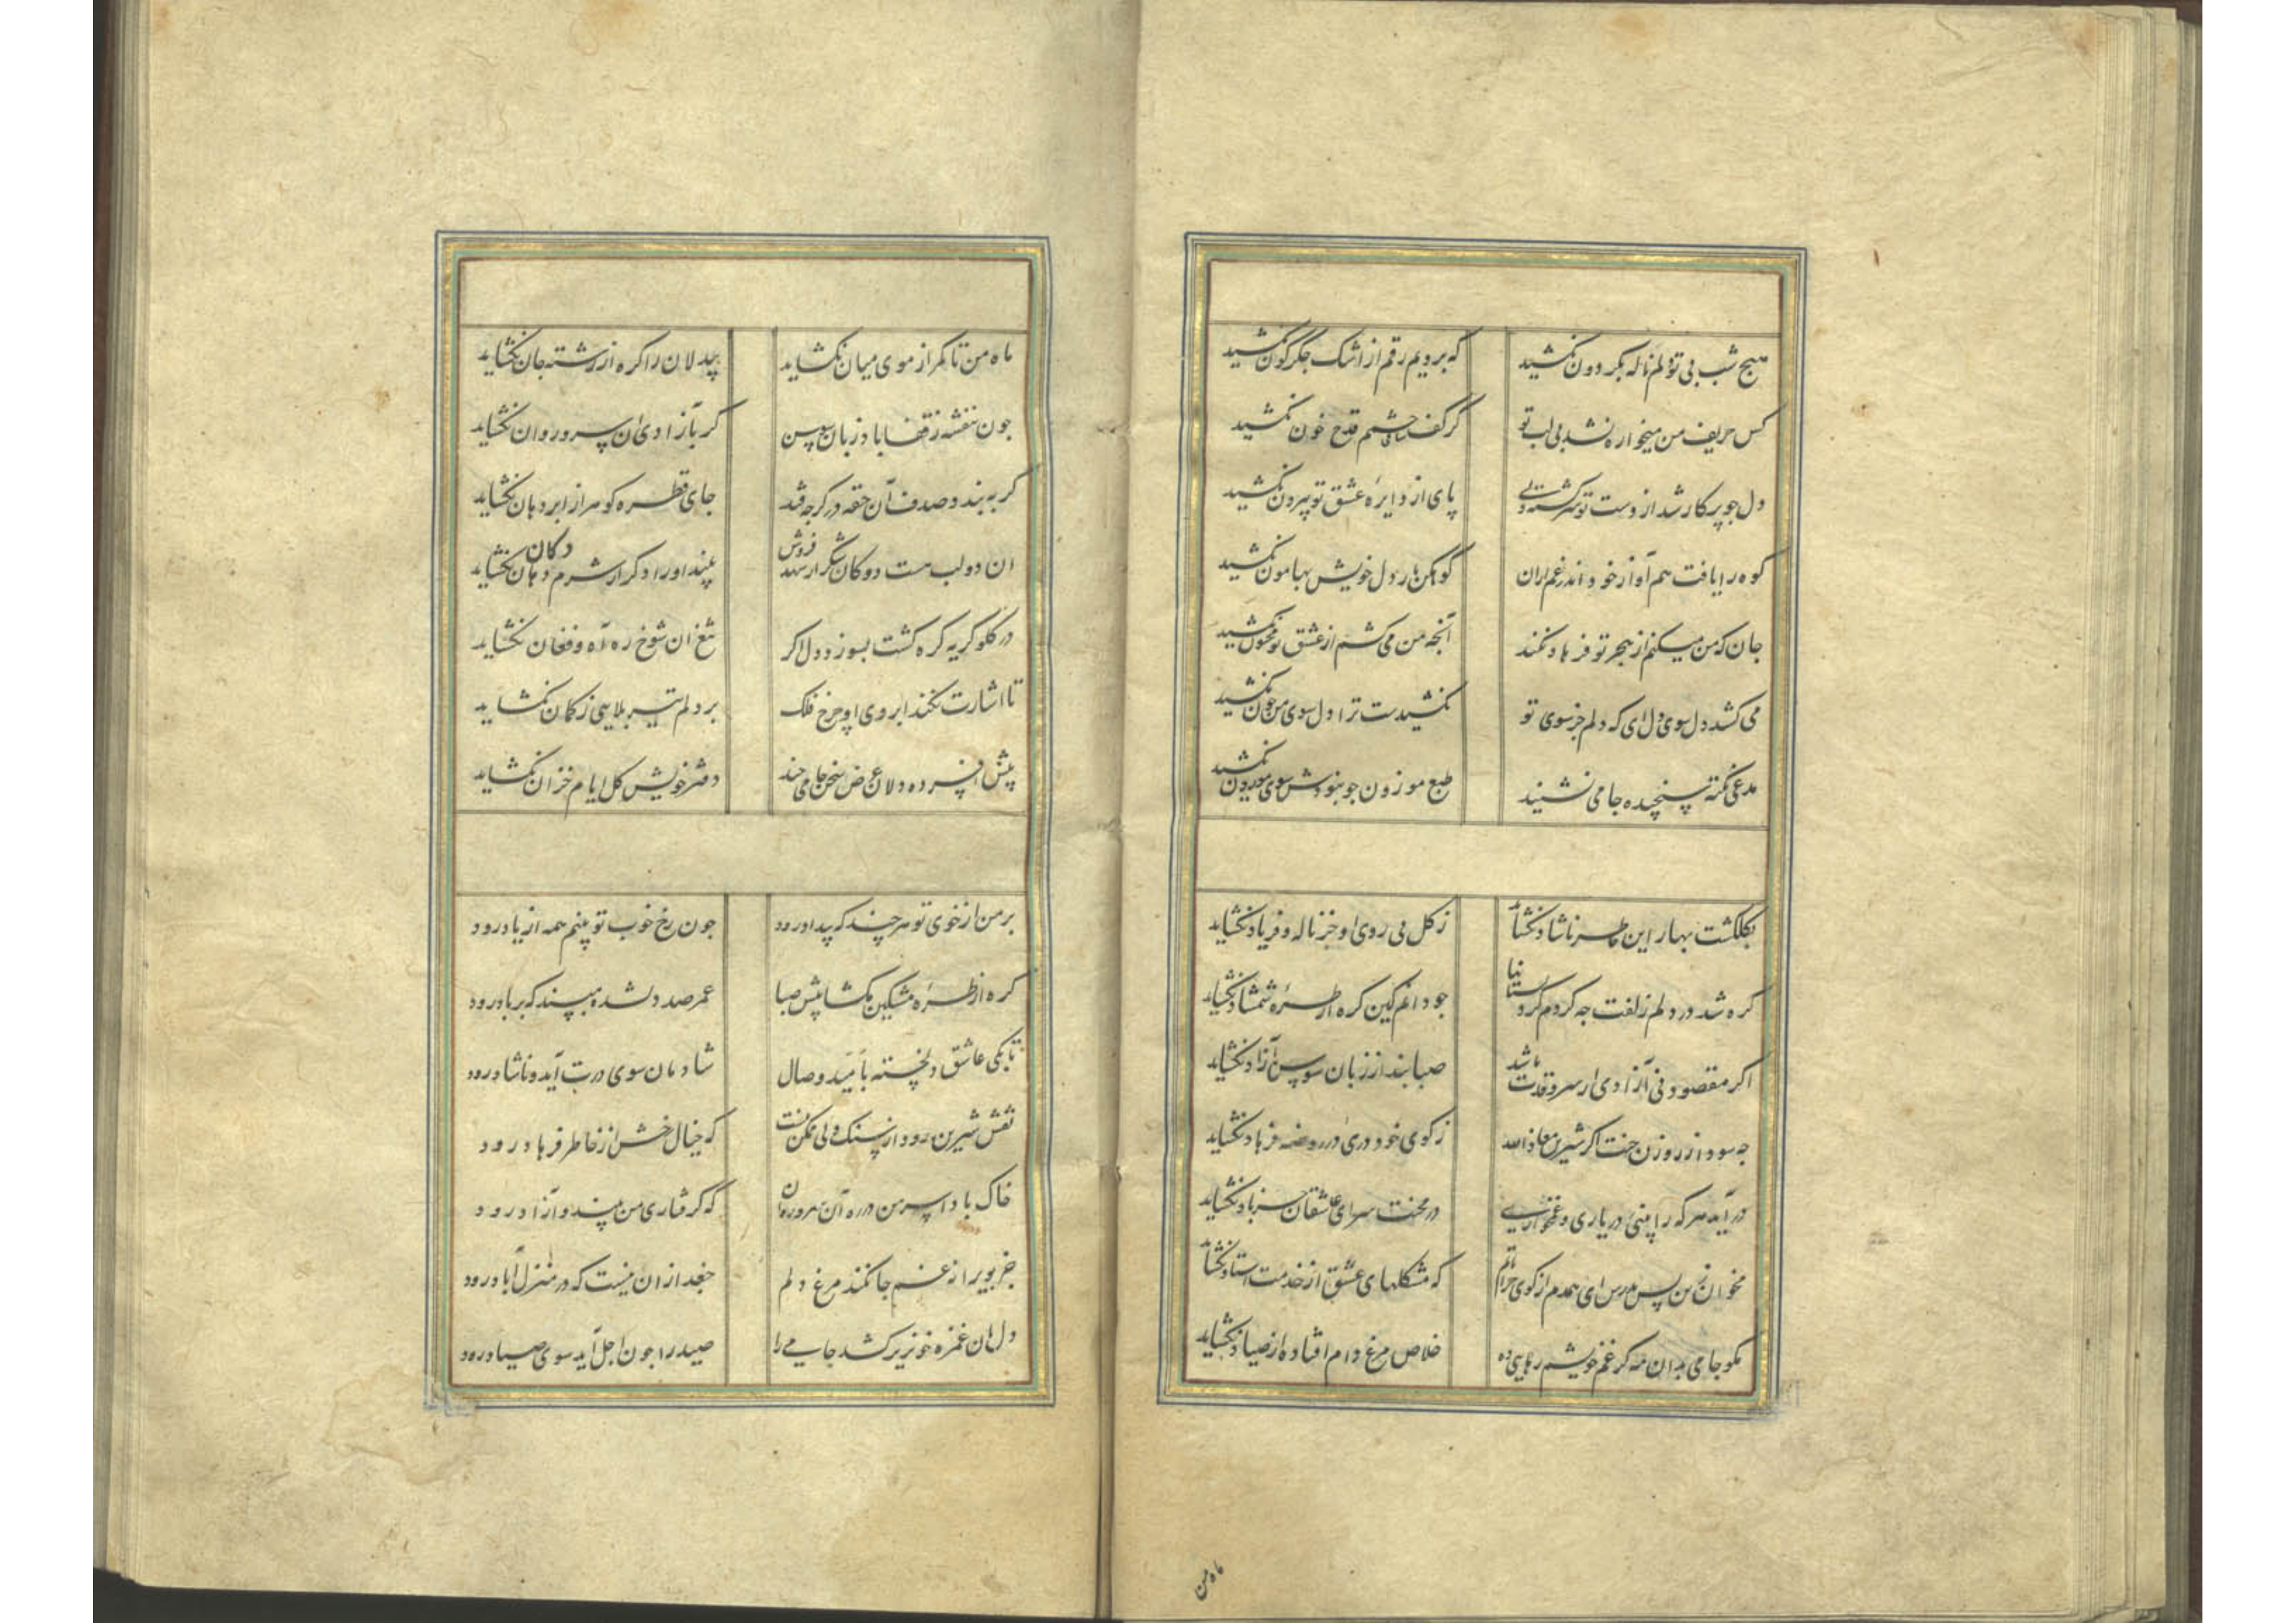 هیچ شب بی تو دلم ناله بگردون نکشید
که برویم رقم از اشک جگرگون نکشید
کس حریف من میخواره نشد بی لب تو
کز کف ساقی چشمم قدح خون نکشید
دل جو پرکار شد از دست تو سرگشته ولی
پای از دایرهٔ عشق تو بیرون نکشید
کوه را یافت هم آواز خود اندر غم یاران
کوهکن بار دل خویش بهامون نکشید
جان که من میکنم از هجر تو فرهاد نکند
آنجه من می کشم از عشق تو مجنون نکشید
می کشد دل سوی دل ای که دلم جز سوی تو
نکشیدست ترا دل سوی من جون نکشید
مدعی نکته سنجیده جامی نشنید
طبع موزون جو نبودش سوی موزون نکشید
بگلگشت بهار این خاطر ناشاد نکشاید
ز کل بی روی او جز ناله و فریاد نکشاید
کره شد در دلم زلفت جه کردم کرد بستانها
جو دانم کین کره از طرهٔ شمشاد نکشاید
اکر مقصود نی آزادی از سرو قدت باشد
صبا بند از زبان سوسن آزاد نکشاید
جه سود از روزن جنت اکر شیرین معاذالله
ز کوی خود دری در روضه فرهاد نکشاید
در آید هر که را بینی در یاری و غمخواری
در محنت سرای عاشقان جز باد نکشاید
مخوان زین بس بدرس ای همدم از کوی خراباتم
که مشکلهای عشق از خدمت استاد نکشاید
مکو جامی بدان مه کز غم خویشم رهایی ده
خلاص مرغ دام افتاده از صیاد نکشاید
ماه من
ماه من تا کمر از موی میان نکشاید
بیدلان را کره از رشته جان نکشاید
جون بنفشه ز قفا باد زبان سوسن
کر بآزادی ان سرو روان نکشاید
کر به بندد صدف آن حقه در کرجه فتد
جای قطره کوهر از ابر دهان نکشاید
ان دو لب هست دو کان شکر ار شهد فروش
بیند اورا دکر از شرم دهان نکشاید
دکان
در کلو کریه کره کشت بسوزد دل اکر
تیغ ان شوخ ره آه و فغان نکشاید
تا اشارت نکند ابروی او جرخ فلک
بر دلم تیر بلایی ز کمان نکشاید
پیش افسرده دلان عرض سخن جامی جند
دفتر خویش کل ایام خزان نکشاید
بر من از خوی تو هر جند که بیداد رود
جون رخ خوب تو بینم همه از یاد رود
کره از طرهٔ مشکین مکشا پیش صبا
عمر صد دلشده مپسند که بر باد رود
تا بکی عاشق دلخسته بامید وصال
شادمان سوی درت آید و ناشاد رود
نقش شیرین رود از سنک ولی ممکن نیست
که خیال رخش از خاطر فرهاد رود
خاک بادا سر من در ره آن سرو روان
که کرفتاری من بیند و آزاد رود
جز بویرانهٔ غم جا نکند مرغ دلم
جغد ازان نیست که در منزل آباد رود
دل بان غمزه خونریز کشد جامی را
صید را جون اجل آید سوی صیاد رود